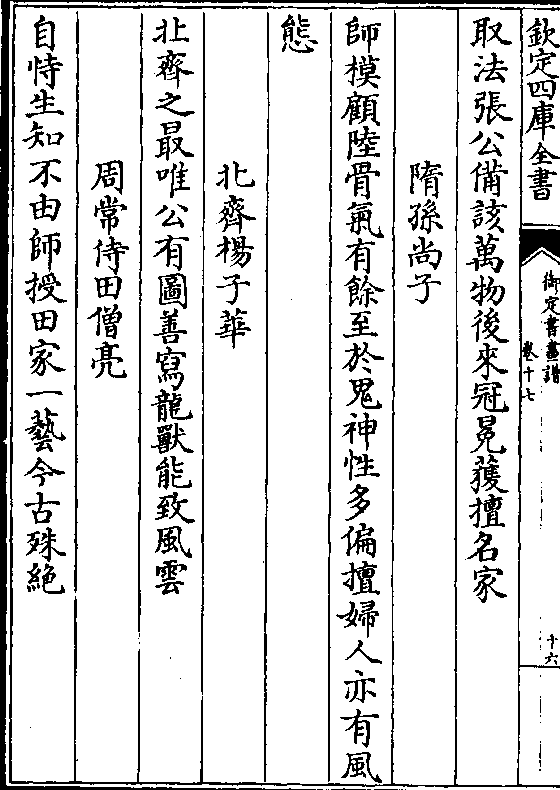 欽定四庫全書
御定書畫譜
卷十七
十六
取法張公備該萬物後來冠冕獲擅名家
隋孫尚子
師模顧陸骨氣有餘至於鬼神性多偏擅婦人亦有風
態
北齊楊子華
北齊之最唯公有圖善寫龍獸能致風雲
周常侍田僧亮
自恃生知不由師授田家一藝今古殊絶